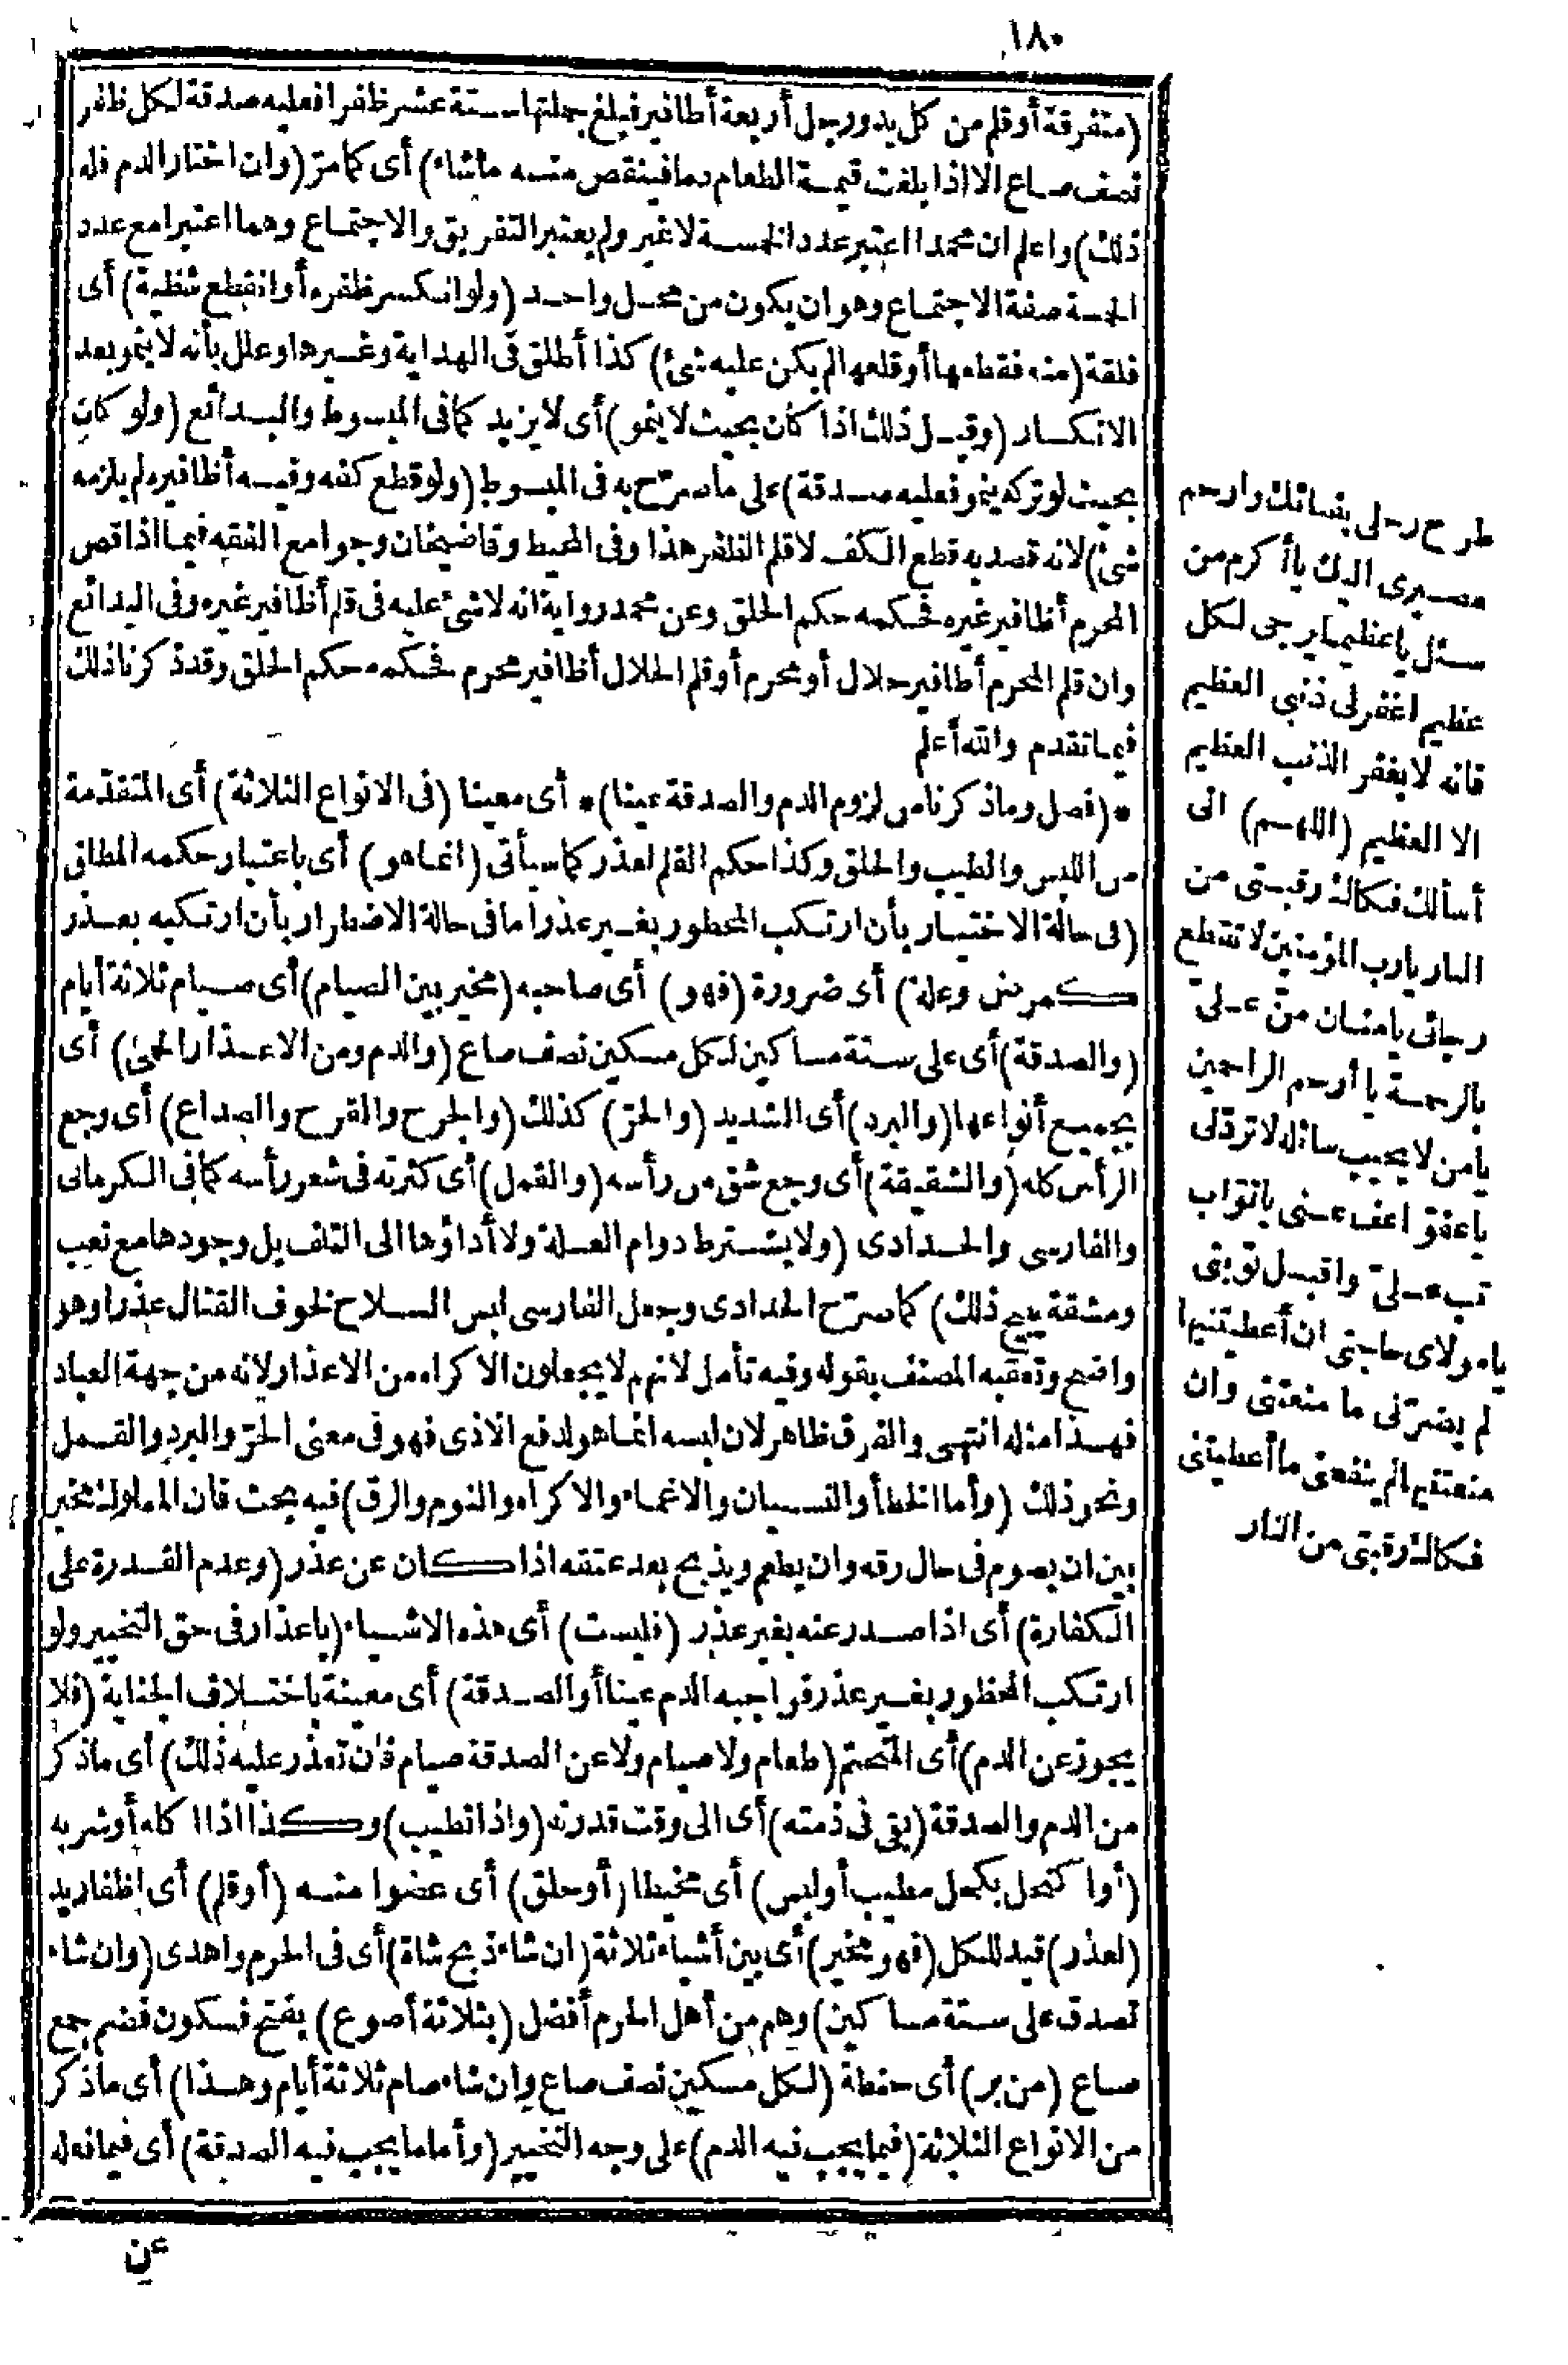 ١٨٠
(متفرقة أو قلم من كل يد ورجل أربعة أظافير فبلغ جملتها ستة عشر ظفرا فعليه صدقة لكل ظفر
نصف صاع الا اذا بلغت قيمة الطعام دما فينقص منه ماشاء) أى كما مرّ (وان اختار الدم فله
ذلك) واعلم ان محمدا اعتبر عدد الخمسة لا غير ولم يعتبر التفريق والاجتماع وهما اعتبرا مع عدد
الخمسة صفة الاجتماع وهو ان يكون من محل واحد (ولو انكسر ظفره أو انقطع شظية) أى
فلقة (منه فقطعها أو قلعها لم يكن عليه شئ) كذا أطلق فى الهداية وغيرها وعلل بأنه لا ينمو بعد
الانكسار (وقيل ذلك اذا كان بحيث لا ينمو) أى لا يزيد كما فى المبسوط والبدائع (ولو كان
بحيث لو تركه ينمو فعليه صدقة) على ما صرّح به فى المبسوط (ولو قطع كفه وفيه أظافيره لم يلزمه
شئ) لانه قصد به قطع الكف لا قلم الظفر هذا وفى المحيط وقاضيخان وجوامع الفقه فيما اذا قص
المحرم أظافير غيره فحكمه حكم الحلق وعن محمد رواية انه لا شئ عليه فى قلم أظافير غيره وفى البدائع
وان قلم المحرم أظافير حلال أو محرم أو قلم الحلال أظافير محرم فحكمه حكم الحلق وقد ذكرنا ذلك
فيما تقدم والله أعلم
* (فصل وما ذكرنا من لزوم الدم والصدقة عينا) * أى معينا (فى الانواع الثلاثة) أى المتقدّمة
من اللبس والطيب والحلق وكذا حكم القلم لعذر كما سيأتى (انما هو) أى باعتبار حكمه المطلق
(فى حالة الاختيار بأن ارتكب المحظور بغير عذر أما فى حالة الاضطرار بأن ارتكبه بعذر
كمرض وعلة) أى ضرورة (فهو) أى صاحبه (مخير بين الصيام) أى صيام ثلاثة أيام
(والصدقة) أى على ستة مساكين لكل مسكين نصف صاع (والدم ومن الاعذار الحمى) أى
بجميع أنواعها (والبرد) أى الشديد (والحرّ) كذلك (والجرح والقرح والصداع) أى وجع
الرأس كله (والشقيقة) أى وجع شق من رأسه (والقمل) أى كثرته فى شعر رأسه كما فى الكرمانى
والفارسى والحدادى (ولا يشترط دوام العلة ولا أداؤها الى التلف بل وجودها مع تعب
ومشقة يبيح ذلك) كما صرّح الحدادى وجعل الفارسى لبس السلاح لخوف القتال عذرا وهو
واضح وتعقبه المصنف بقوله وفيه تأمل لانهم لا يجعلون الاكراه من الاعذار ولانه من جهة العباد
فهذا مثله انتهى والفرق ظاهر لان لبسه انما هو لدفع الاذى فهو فى معنى الحرّ والبرد والقمل
ونحو ذلك (وأما الخطأ والنسيان والاغماء والاكراه والنوم والرق) فيه بحث فان المملوك مخير
بين ان يصوم فى حال رقه وان يطعم ويذبح بعد عتقه اذا كان عن عذر (وعدم القدرة على
الكفارة) أى اذا صدر عنه بغير عذر (فليست) أى هذه الاشياء (باعذار فى حق التخيير ولو
ارتكب المحظور بغير عذر فواجبه الدم عينا أو الصدقة) أى معينة باختلاف الجناية (فلا
يجوز عن الدم) أى المتحتم (طعام ولا صيام ولا عن الصدقة صيام فان تعذر عليه ذلك) أى ما ذكر
من الدم والصدقة (بقى فى ذمته) أى الى وقت قدرته (واذا تطيب) وكذا اذا اكله أو شربه
(أو اكتحل بكحل مطيب أو لبس) أى مخيطا (أو حلق) أى عضوا منه (أو قلم) أى اظفار يد
(لعذر) قيد للكل (فهو مخير) أى بين أشياء ثلاثة (ان شاء ذبح شاة) أى فى الحرم واهدى (وان شاء
تصدق على ستة مساكين) وهم من أهل الحرم أفضل (بثلاثة أصوع) بفتح فسكون فضم جمع
صاع (من بر) أى حنطة (لكل مسكين نصف صاع وان شاء صام ثلاثة أيام وهذا) أى ما ذكر
من الانواع الثلاثة (فيما يجب فيه الدم) على وجه التخيير (وأما ما يجب فيه الصدقة) أى فيما فعله
عن
طرح رحلى بفنائك وارحم
مصيرى اليك يا أكرم من
سئل يا عظيما يرجى لكل
عظيم اغفر لى ذنبى العظيم
فانه لا يغفر الذنب العظيم
الا العظيم (اللهم) انى
أسألك فكاك رقبتى من
النار يا رب المؤمنين لا تقطع
رجائى يا منان منّ علىّ
بالرحمة يا أرحم الراحمين
يا من لا يخيب سائله لا تردّنى
يا عفوّ اعف عنى يا توّاب
تب علىّ واقبل توبتى
يا مولاى حاجتى ان أعطيتنيها
لم يضرّنى ما منعتنى وان
منعتنيها لم ينفعنى ما أعطيتنى
فكاك رقبتى من النار